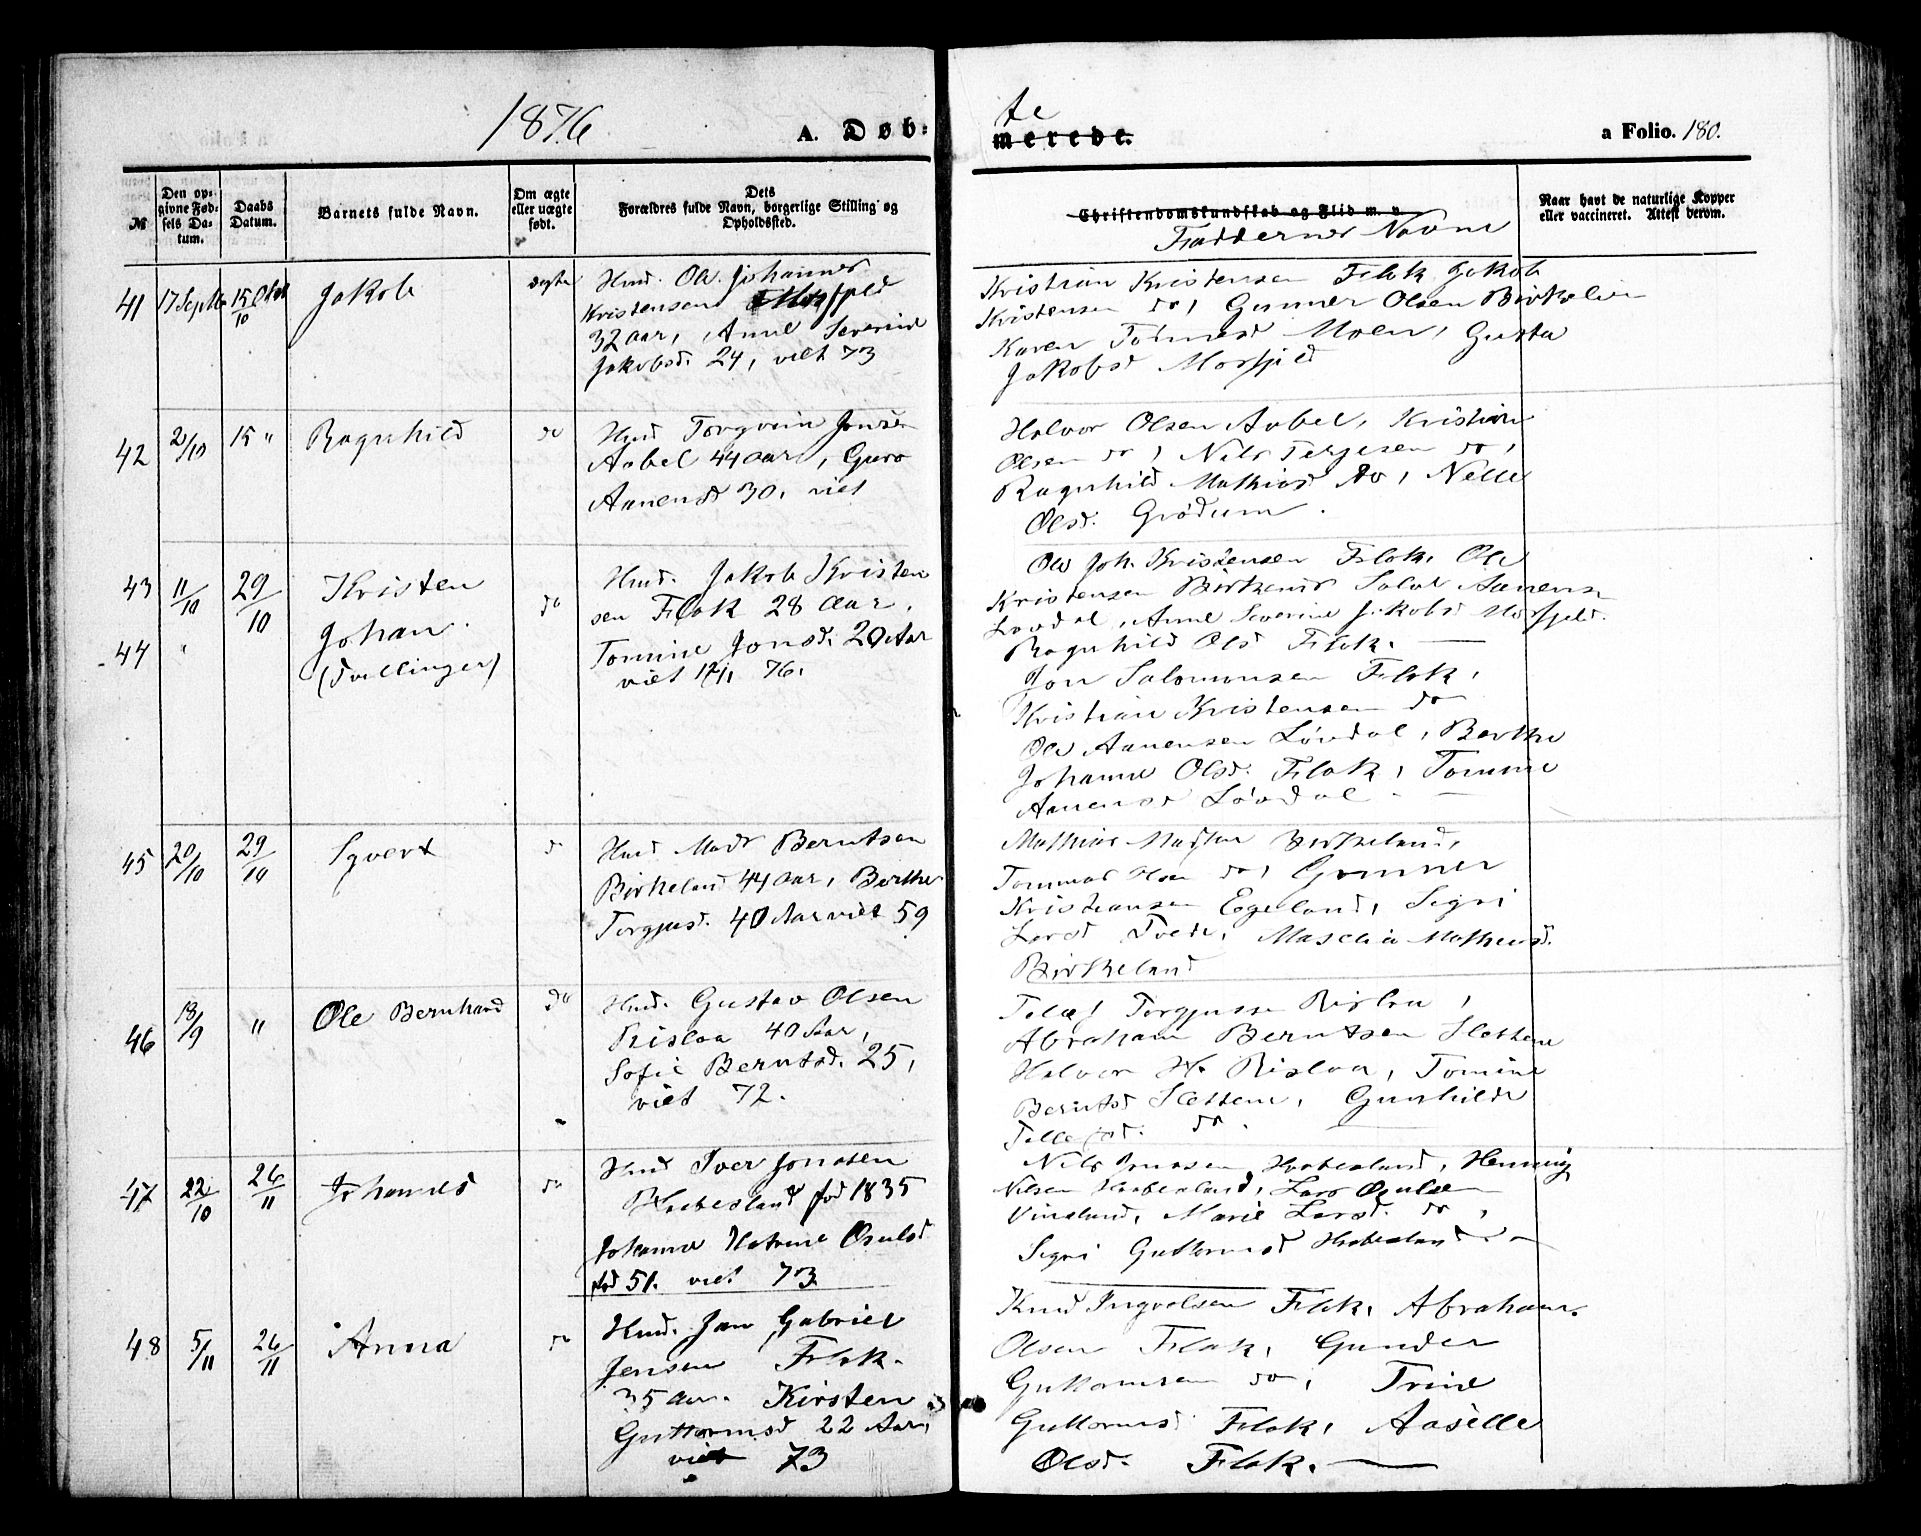 1876
A. Døb:
te
merede.
a Folio. 180.
№
Den opgivne Fødsels Datum.
Daabs Datum.
Barnets fulde Navn.
Om ægte eller uægte født.
Dets Forældres fulde Navn, borgerlige Stilling og Opholdssted.
Christendomskundskab og Flid m. v.
Faddernes Navne
Naar havt de naturlige Kopper eller vaccineret. Attest derom.
41 17 Septbr 15 Octbr 10 Jakob ægte
Hmd. Ole Johannes
Kristensen
32 aar, Anne Severine
Jakobsd. 24, viet 73
Kristian Kristensen Flak Jakob
Kristensen do, Gunner Olsen Birkeland
Karen Tomasd Moen, Gusta
Jakobsd Mosfjeld
42 2/10 15 " Ragnhild do
Hmd Torgrim Jonsen
Aabel 44 aar, Guro
Aanensd 30, viet
Halvor Olsen Aabel, Kristian
Olsen do, Nils Terjesen do,
Ragnhild Mathiasd do, Nelle
Olsd. Grödum.
43 11/10 29/10 Kristen do
44 " Johan.
(Tvillinger)
Hmd. Jakob Kristen
sen Flak 28 Aar,
Tomine Jonsd. 20 Aar
viet 12/11 76.
Ole Joh. Kristensen Flak, Ole
Kristensen Birkenes Salve Aanens
Løvdal, Anne Severine Jakobsd Mosfjeld.
Ragnhild Olsd Flak.
Jon Salomonsen Flak,
Kristian Kristensen do
Ole Aanensen Løvdal, Berthe
Johanne Olsd. Flak, Tomine
Aanensd Løvdal.
45 20/10 29/10 Syvert do
Hmd Mads Berntsen
Birkeland 44 aar, Berthe
Torgjusd. 40 Aar viet 59
Mathias Madsen Birkeland,
Tommas Olsen do, Gunner
Kristiansen Egeland, Sigri
Larsd Tveide, Maselia Mathiasd.
Birkeland
46 18/9 " Ole Bernhard do
Hmd. Gustav Olsen
Rislaa 40 Aar,
Sofie Berntsd. 25,
viet 72.
Torgjussen Rislaa,
Abraham Berntsen Slettene
Halvor H. Rislaa, Tomine
Berntsd Slettene, Gunhilde
Tellefsd. do.
47 22/10 26/11 Johannes do
Hmd Iver Jonasen
Haabesland fød 1835
Johanne Katrine Osulsd
fød 51. viet 73
Nils Jonassen Haabesland, Henning
Nilsen Haabesland, Lars Osulsen
Vinsland, Marie Larsd. do,
Sigri Guttormsd Haabesland.
48 5/11 26/11 Anna do
Hmd. Jan Gabriel
Jensen Flak.
35 aar. Kirsten
Guttormsd 22 Aar,
viet 73
Knud Ingvalsen Flak, Abraham
Olsen Flak, Gunder
Guttormsen do, Trine
Guttormsd Flak, Aaselle
Olsd. Flak.